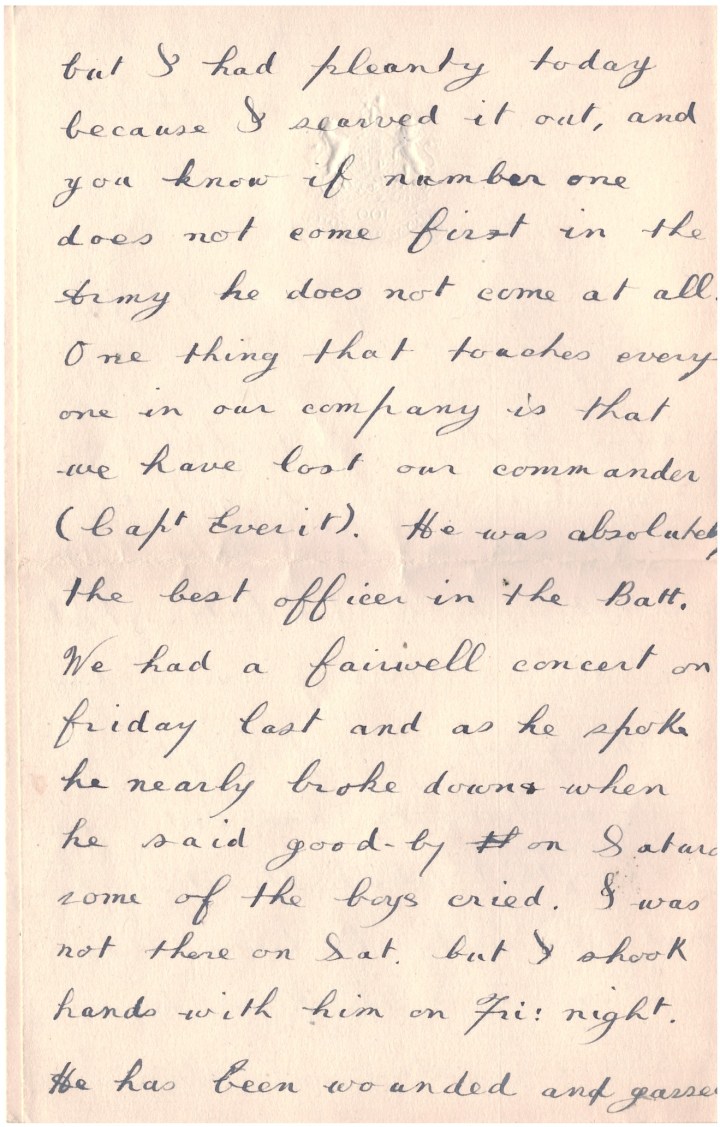 but I had pleanty today
because I searved it out, and
you know if number one
does not come first in the
Army he does not come at all.
One thing that touches every
one in our company is that
we have lost our commander
(Capt Everit). He was absolutely
the best officer in the Batt.
We had a fairwell concert on
friday last and as he spoke
he nearly broke down when
he said good-by on Saturd
some of the boys cried. I was
not there on Sat. but I shook
hands with him on Fri: night.
He has been wounded and gassed